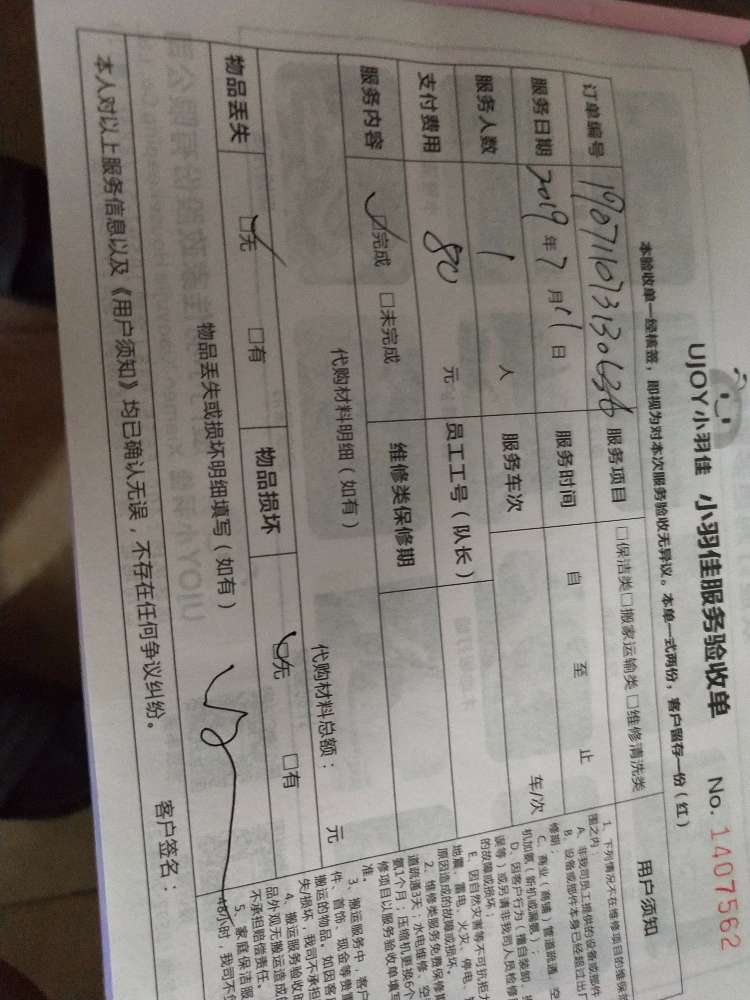 UJOY小羽佳 小羽佳服务验收单 No. 1407562
本验收单一经核签，即视为对本次服务验收无异议。本单一式两份，客户留存一份（红）
订单编号 服务项目 □保洁类□搬家运输类□维修清洗类
服务日期 2019年7月11日 服务时间 自 至 止
服务人数 1 人 服务车次 车/次
支付费用 80 元 员工工号（队长）
服务内容 ☑完成 □未完成 维修类保修期
代购材料明细（如有） 代购材料总额： 元
物品丢失 ☑无 □有 物品损坏 ☑无 □有
物品丢失或损坏明细填写（如有）
本人对以上服务信息以及《用户须知》均已确认无误，不存在任何争议纠纷。 客户签名：
用户须知
1、下列情况不在维修项目的维保
围之内：
A、非我司员工提供的设备或部件
B、设备或部件本身已经超过出厂
修期；
C、商业（商铺）管道疏通、空
机加氨（新机或漏氨）；
D、因客户行为（擅自装卸、
误等）或另请非我司人员检修
的故障或损坏；
E、因自然灾害等不可抗拒力
地震、雷电、火灾、停电、
原因造成的故障或损坏。
2、维修类服务免费保修期
道疏通3天；水电维修、空
氨1个月；压缩机更换6个
修项目以服务验收单填写
准。
3、搬运服务中，客户
件、首饰、现金等贵重
搬运的物品。如因客
失/损坏，我司不承担
4、搬运服务验收时
品外观无搬运造成的
不承担赔偿责任。
5、家庭保洁服
48小时，我司不